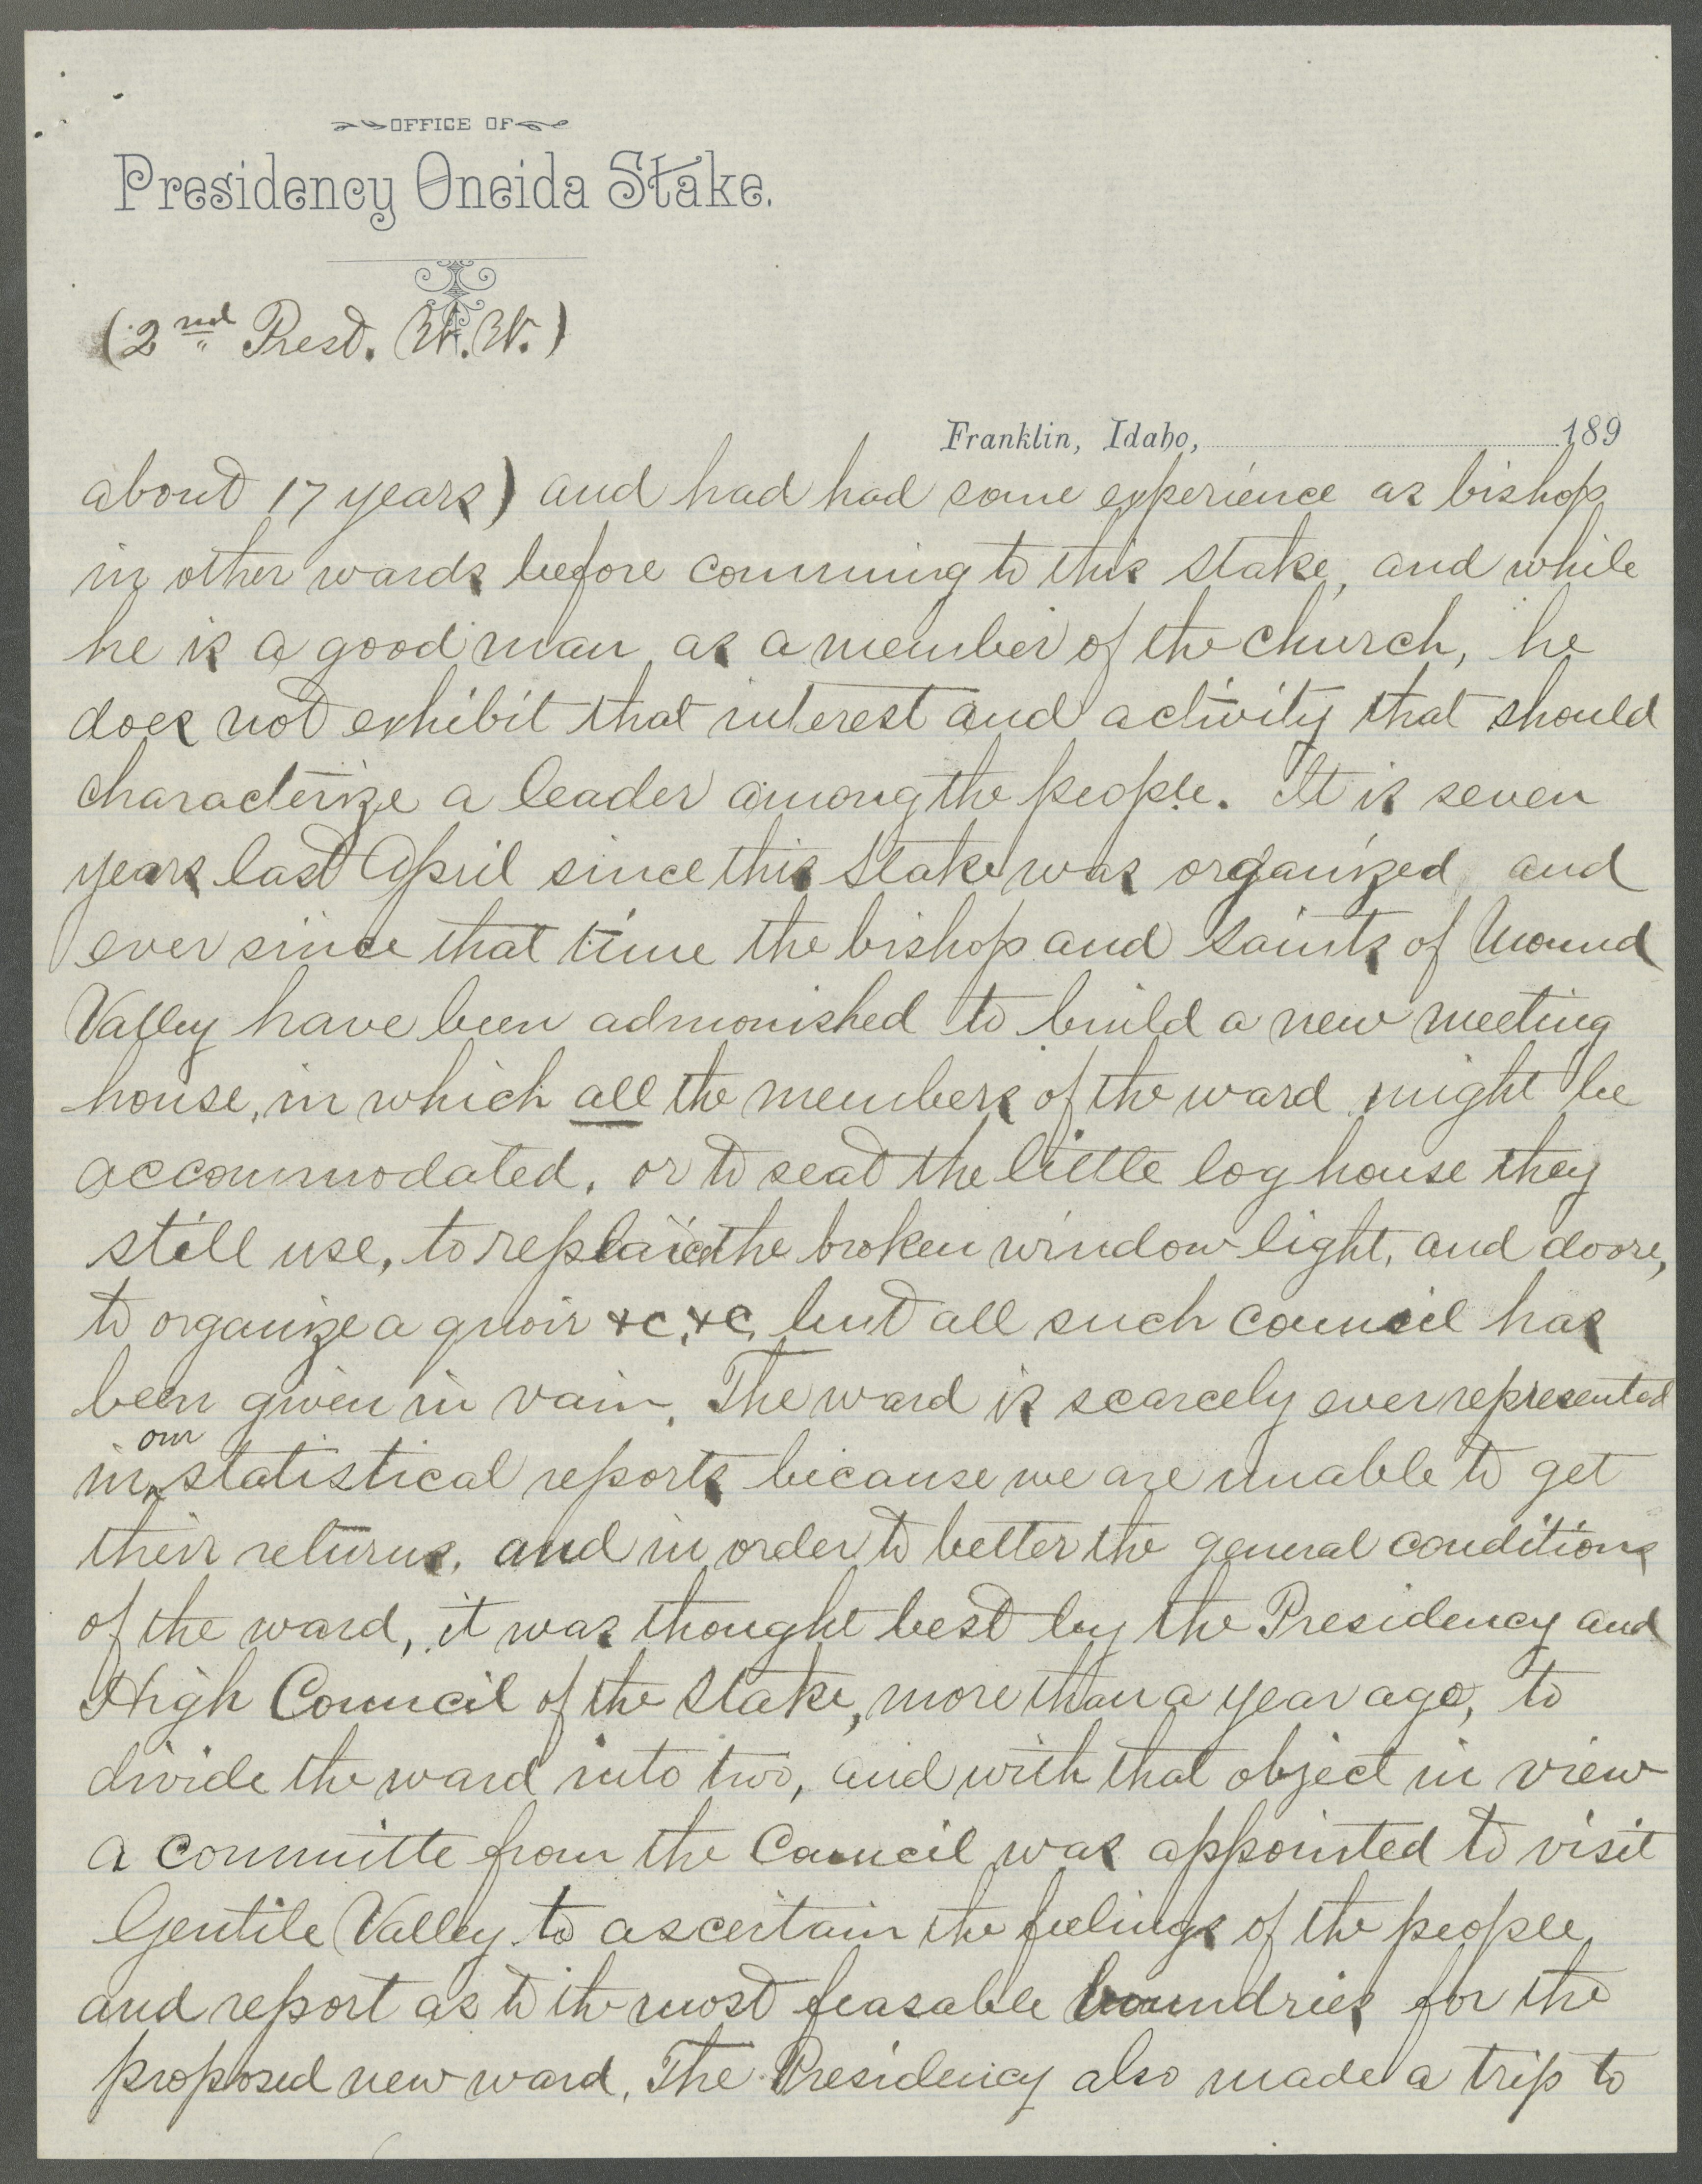 OFFICE OF
Presidency Oneida Stake.
(2nd Prest. W. W.)
Franklin, Idaho, 189
about 17 years) and had had some experience as bishop
in other wards before comming to this Stake, and while
he is a good man as a member of the church, he
does not exhibit that interest and activity that should
characterize a leader among the people. It is seven
years last April since this Stake was organized and
ever since that time the bishop and Saints of Mound
Valley have been admonished to build a new meeting
house, in which all the members of the ward might be
accommodated, or to seat the little log house they
still use, to replace the broken window light, and doore,
to organize a quoir &c, &c, but all such council has
been given in vain. The ward is scarcely ever represented
in our statistical reports bicause we are unable to get
their returns. and in order to better the general conditions
of the ward, it was thought best by the Presidency and
High Council of the Stake, more than a year ago, to
divide the ward into two, and with that object in view
a committe from the Council was appointed to visit
Gentile Valley to ascertain the feelings of the people
and report as to the most feasable boundries for the
proposed new ward. The Presidency also made a trip to